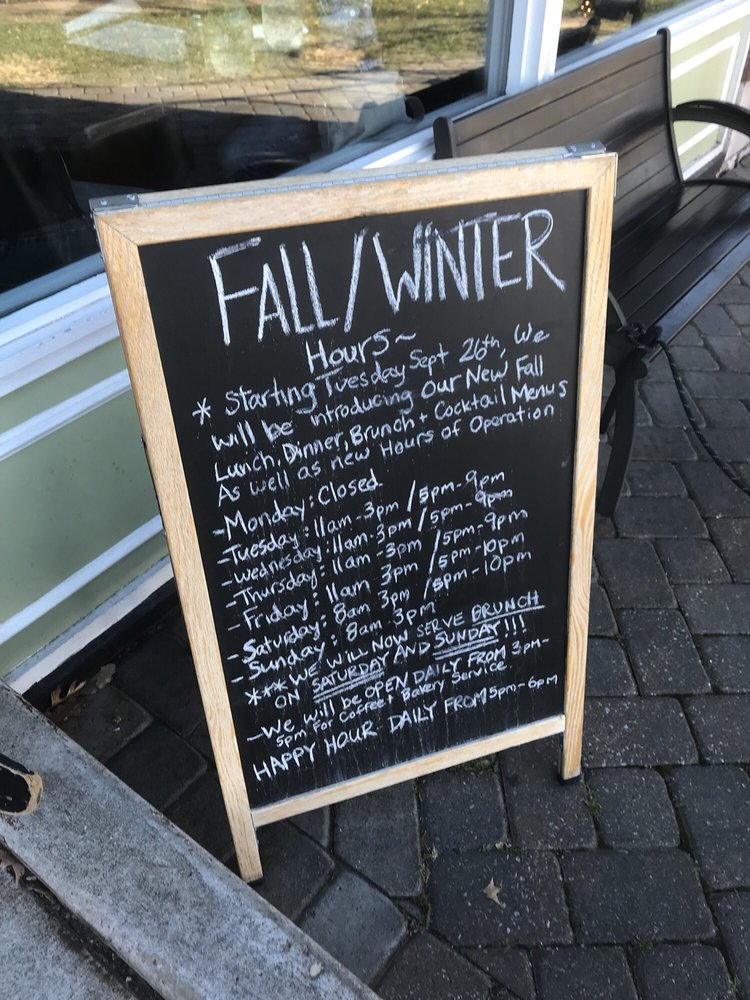 FALL/WINTER
Hours~
* Starting Tuesday Sept 26th, We
will be introducing Our New Fall
Lunch, Dinner, Brunch + Cocktail Menus
As well as new Hours of Operation
- Monday: Closed
- Tuesday: 11am-3pm / 5pm-9pm
- Wednesday: 11am-3pm / 5pm-9pm
- Thursday: 11am-3pm / 5pm-9pm
- Friday: 11am 3pm / 5pm-10pm
- Saturday: 8am 3pm / 5pm-10pm
- Sunday: 8am 3pm
*** WE WILL NOW SERVE BRUNCH
ON SATURDAY AND SUNDAY!!!
- We will be OPEN DAILY FROM 3pm-
5pm For Coffee + Bakery Service
HAPPY HOUR DAILY FROM 5pm-6pm